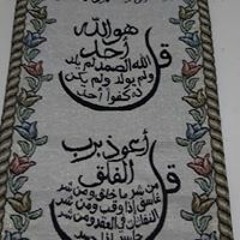 هو الله
قل أحد
الله الصمد لم يلد
ولم يولد ولم يكن
له كفوا أحد
أعوذ برب
قل الفلق
من شر ما خلق ومن شر
غاسق إذا وقب ومن شر
النفاثات في العقد ومن شر
حاسد إذا حسد